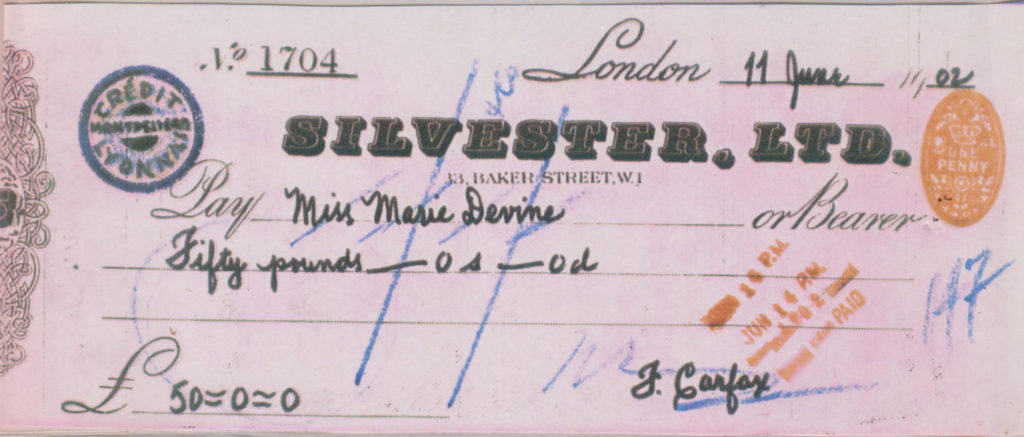 No 1704
London 11 June 1902
CRÉDIT
MONTPELLIER
LYONNAIS
SILVESTER, LTD.
33, BAKER STREET, W.1
ONE
PENNY
Pay Miss Marie Devine or Bearer
Fifty pounds — 0 s — 0d
P.M.
JUN 14 P.M.
PAID
£ 50=0=0
F. Carfax